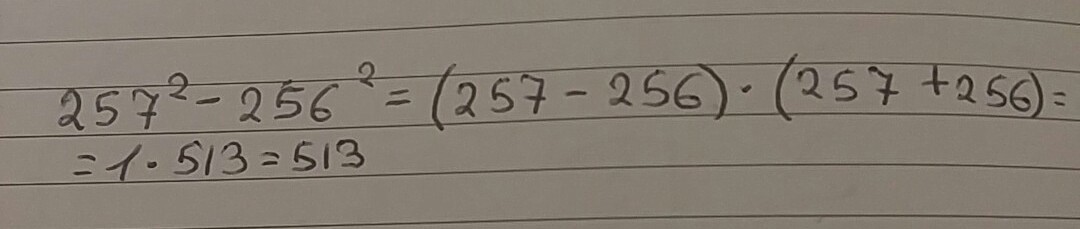 257² - 256² = (257 - 256) · (257 + 256) =
= 1 · 513 = 513